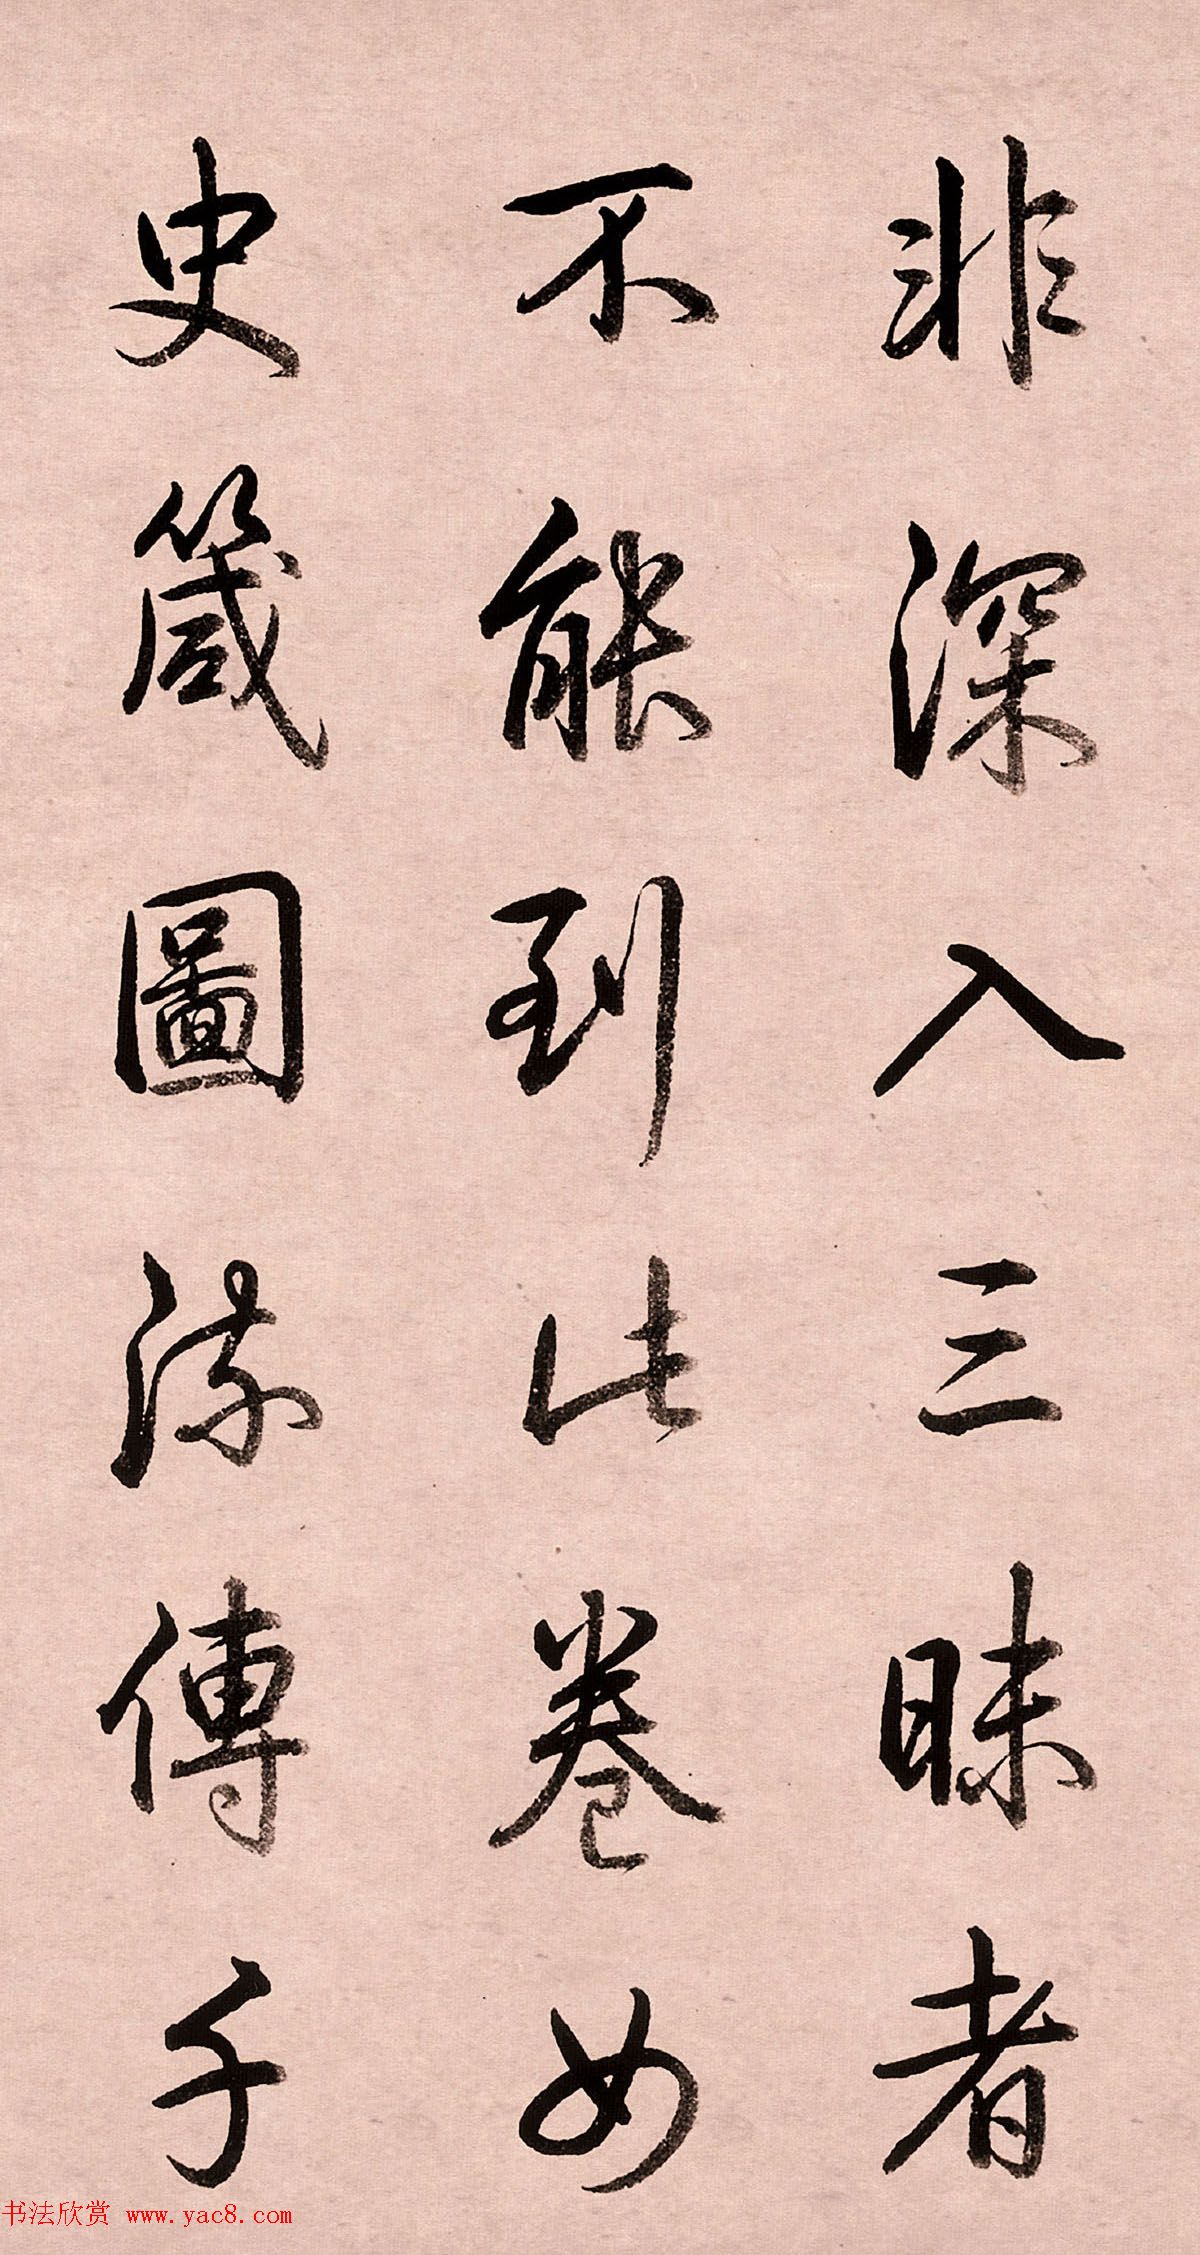 非深入三昧者
不能到此卷女
史箴圖流傳千
书法欣赏 www.yac8.com